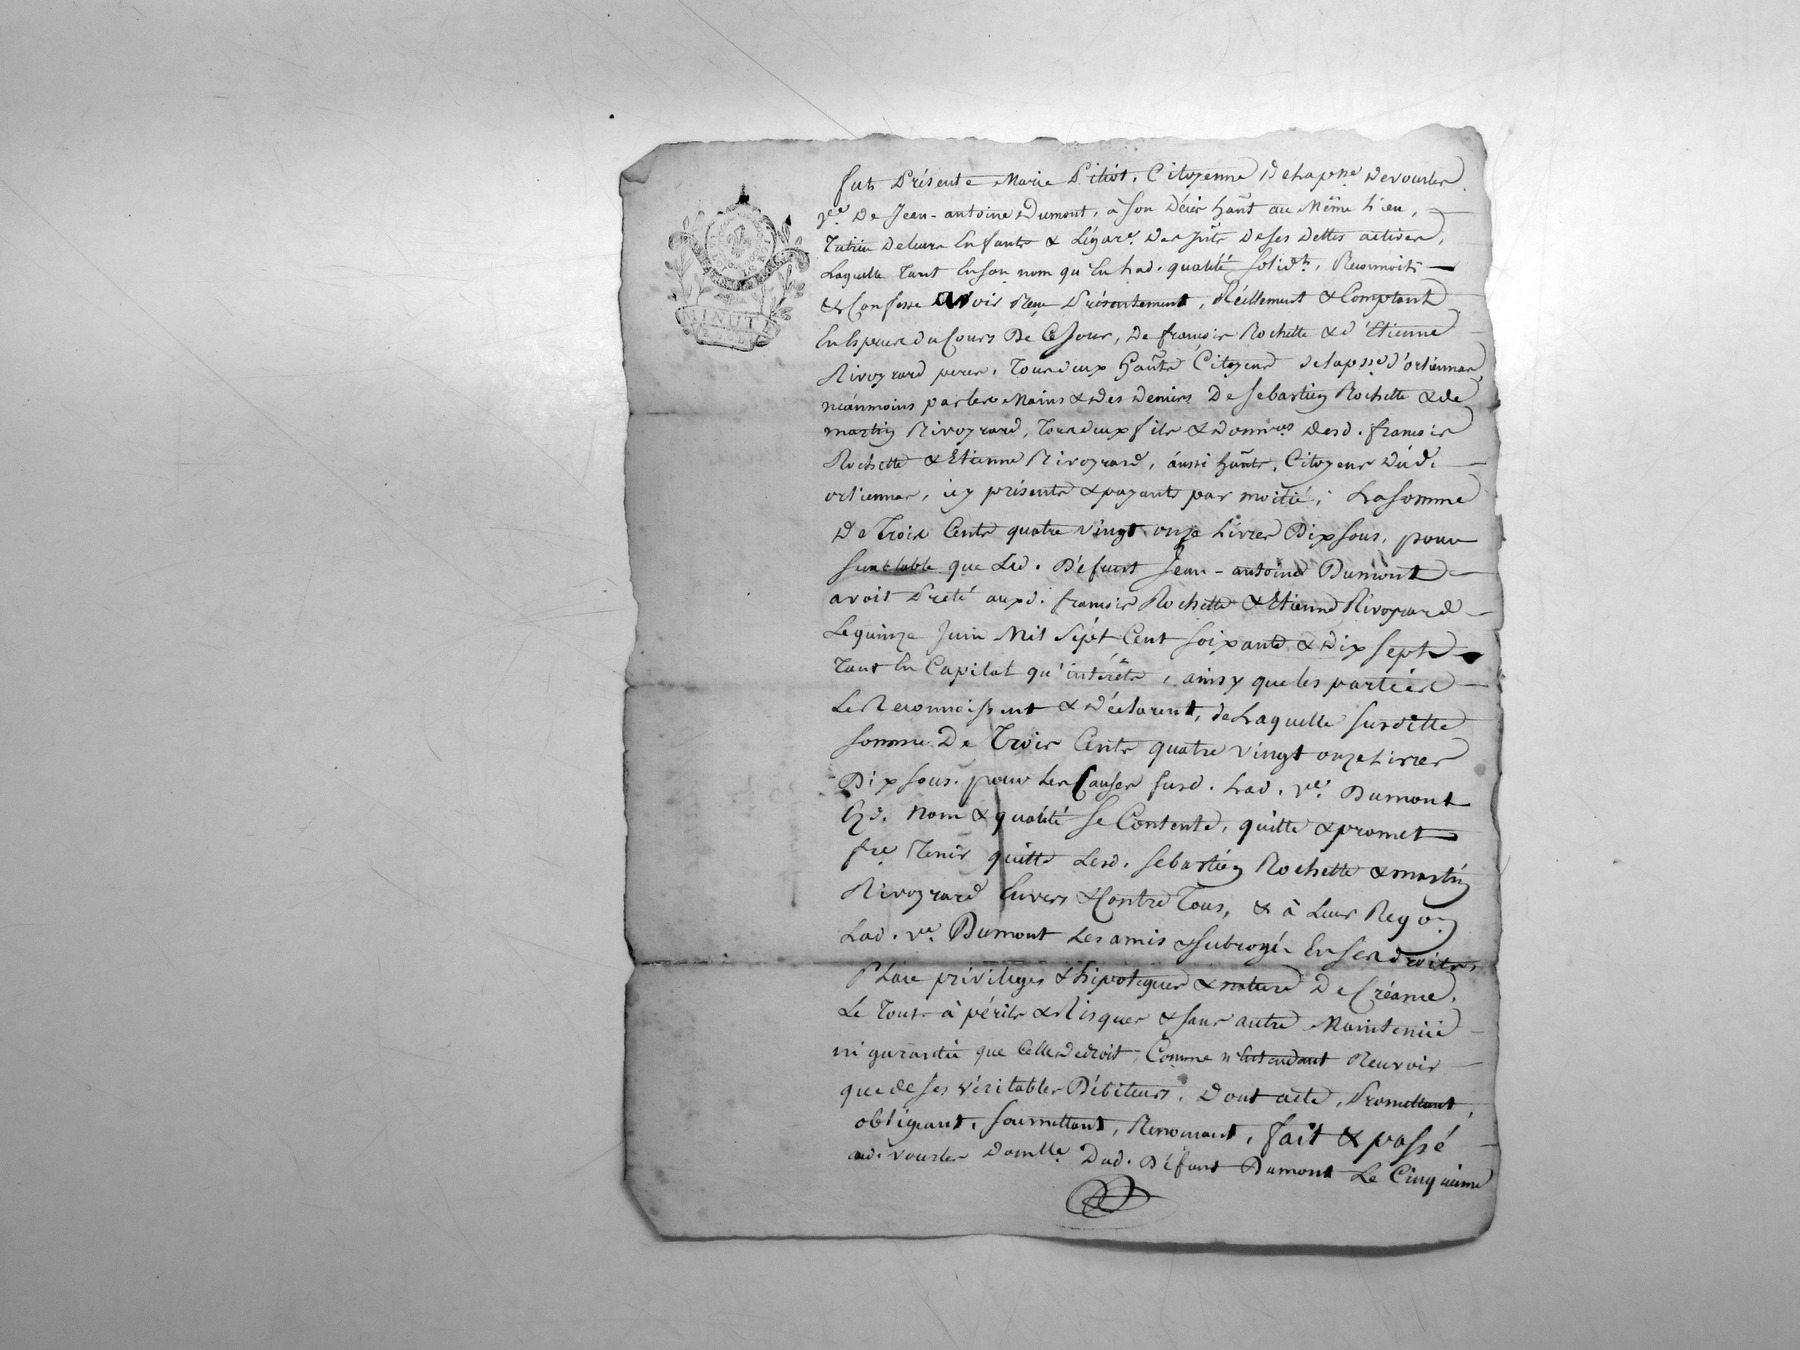 MINUTE
fut Présente Marie Pitiot, Citoyenne De la pnne De vourles
vve De Jean-antoine Dumont, à son Décès hant au Même lieu,
Tutrice De leurs Enfants & Légare. Des fruits De ses Dettes actives,
Laquelle tant En son nom qu'En lad. qualité solidt. Reconnoit
& Confesse avoir Reçu Présentement, Réellement & Comptant
En Espèces du Cours De Ce Jour, De françois Rochette & d'Etienne
Rivoyrard peres, Tous deux hants Citoyens de la psse d'orliennas,
néanmoins par les Mains & Des Deniers De sebastien Rochette & de
martin Rivoyrard, Tous deux fils & Donnres Desd. françois
Rochette & Etienne Rivoyrard, aussi hants, Citoyens Dud.
orliennas, icy présents & payants par moitié, La somme
De Trois Cents quatre vingt onze Livres Dix sous, pour
semblable que Led. Défunt Jean-antoine Dumont
avoit Prêté auxd. françois Rochette & Etienne Rivoyrard
Le quinze Juin Mil Sépt Cent soixante & Dix sept
tant En Capital qu'intérêts, ainsy que les parties
Le Reconnoissent & Déclarent, de Laquelle susditte
somme De Trois Cents quatre vingt onze Livres
Dix sous, pour les Causes susd. Lad. vve Dumont
Esd. Nom & qualité se Contente, quitte & promet
fre Tenir quitte Lesd. sebastien Rochette & martin
Rivoyrard Envers & Contre Tous, & à Leur Reqon
Lad. ve. Dumont Les a mis & subrogé En ses droits
Place privileges & hipoteques & nature De Créance,
Le Tout à périls & Risques & sans autre Maintenüe
ni garantie que Celle de droit, Comme n'Entendant Recevoir
que de ses véritables Débiteurs, Dont acte, Promettant,
obligeant, soumettant, Renonçant, fait & passé
aud. vourles Domlle. Dud. Défunt Dumont Le Cinquieme